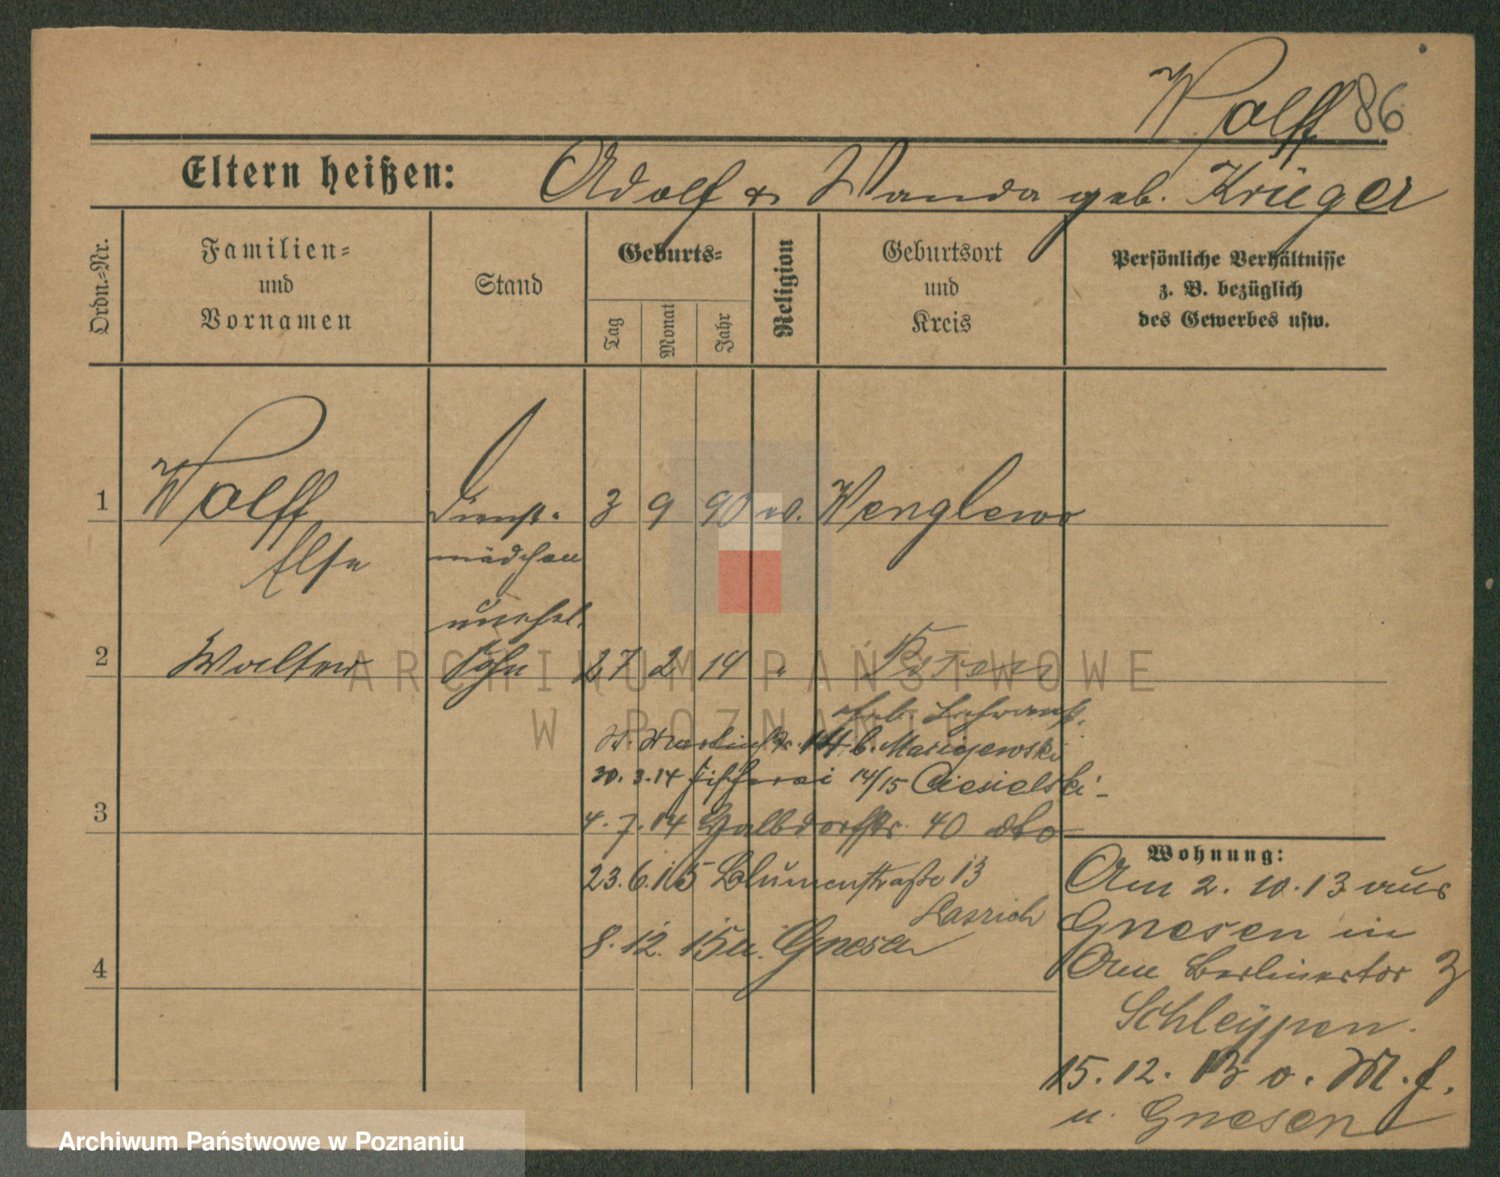 Wolff 86
Eltern heißen: Adolf & Wanda geb. Krüger
Ordn.-Nr.
Familien-
und
Vornamen
Stand
Geburts-
Tag
Monat
Jahr
Religion
Geburtsort
und
Kreis
Persönliche Verhältnisse
z. B. bezüglich
des Gewerbes usw.
1 Wolff Dienst- 3 9 90 ev. Wenglewo
Else mädchen
unehel.
2 Walter Sohn 27 2 14 " Posen
ARCHIWUM PAŃSTWOWE
W POZNANIU
St. Martinstr. 14 b. Maciejewski
30. 3. 14 14/15 Ciesielski
3
4. 7. 14 Halbdorfstr. 40 dto
23. 6. 15 Blumenstraße 13
8. 12. 15 u. Gnesen
4
Wohnung:
Am 2. 10. 13 aus
Gnesen in
Am Berlinertor 3
Schleypen.
15. 12. 13 o. M. f.
u. Gnesen
Archiwum Państwowe w Poznaniu